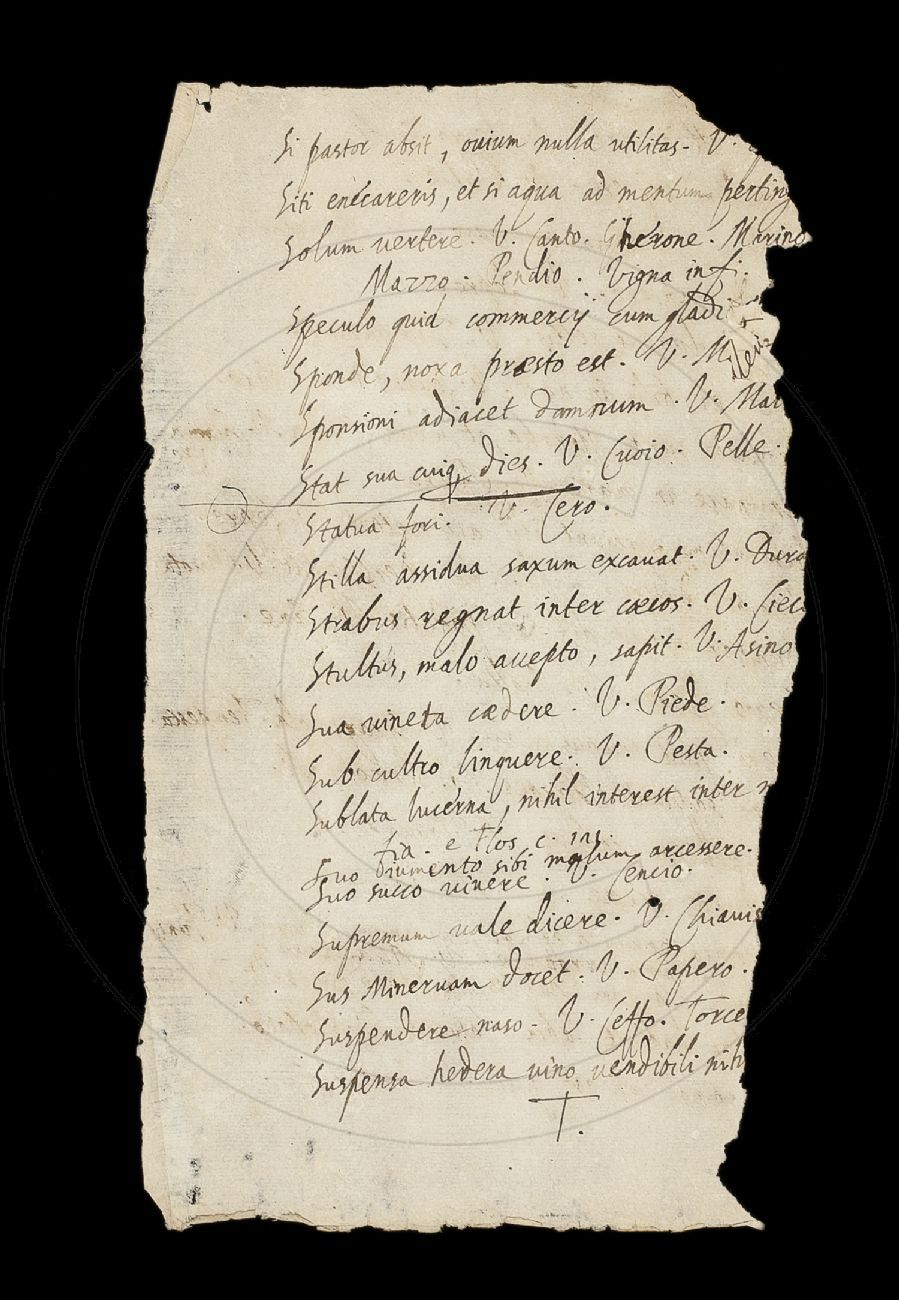 Si pastor absit, ouium nulla utilitas. V.
Siti enecareris, et si aqua ad mentum perting
Solum vertere. V. Canto. Gherone. Marino
Mazzo. Pendio. Vigna in fi.
Speculo quid commercij cum gladi
Sponde, noxa præsto est. V. M
Sponsioni adiacet damnum. V. Mar
Stat sua cuiq dies. V. Cuoio. Pelle.
Statua fori. V. Cero.
Stilla assidua saxum excauat. V. Dura
Strabus regnat inter cæcos. V. Ciec
Stultus, malo accepto, sapit. V. Asino
Sua vineta cædere. V. Piede.
Sub cultro linquere. V. Pesta.
Sublata lucerna, nihil interest inter
Suo iumento sibi malum arcessere.
Suo succo viuere. V. Cencio.
Supremum vale dicere. V. Chiauis
Sus Mineruam docet. V. Papero.
Suspendere naso. V. Ceffo. Torce
Suspensa hedera vino vendibili nih
T.